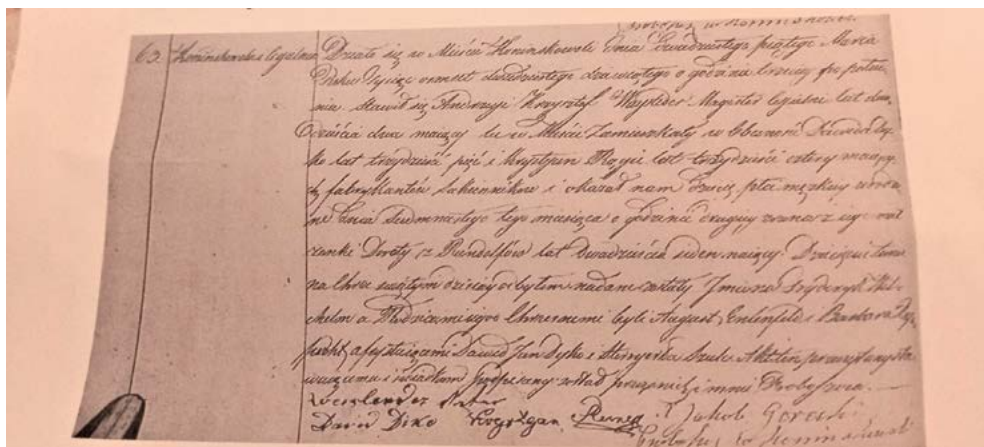 Proboszcz w Koninskowoli.
63. Koninskowola cegielnia Działo się w Mieście Koninskowoli dnia dwudziestego piątego Marca
Roku Tysiąc osmset dwudziestego dziewiątego o godzinie trzeciey po połud-
niu. Stawił się Andrzey Krzysztof Magister lat dwa-
dzieścia dwa maiący tu w Mieście Zamieszkały w Obecności Dawida Dy-
ko lat trzydzieści pięć i Krystyan lat trzydzieści cztery maiący-
ch fabrykantów Sukienników i okazał nam Dziecię płci męzkiey urodzo-
ne dnia Siedmnastego tego miesiąca o godzinie drugiey zrana z iego mał-
żonki Doroty z lat dwadzieścia siedem maiącey. Dziecięciu temu
na Chrzcie świętym dzisiay odbytem nadane zostały Imiona Frydryk Wil-
chelm a Rodzicami iego Chrzestnemi byli August i Barbara
a Dawid Jan Dyko i Szulc. Akt ten przeczytany sta-
waiącemu i świadkom podpisany został przez nich i mnie Proboszcza. —
David Diko X. Jakób Górecki
Proboszcz w